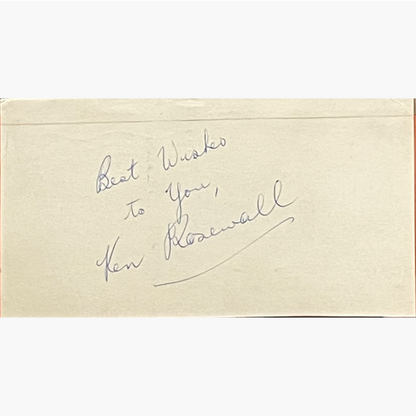 Best Wishes
to You,
Ken Rosewall